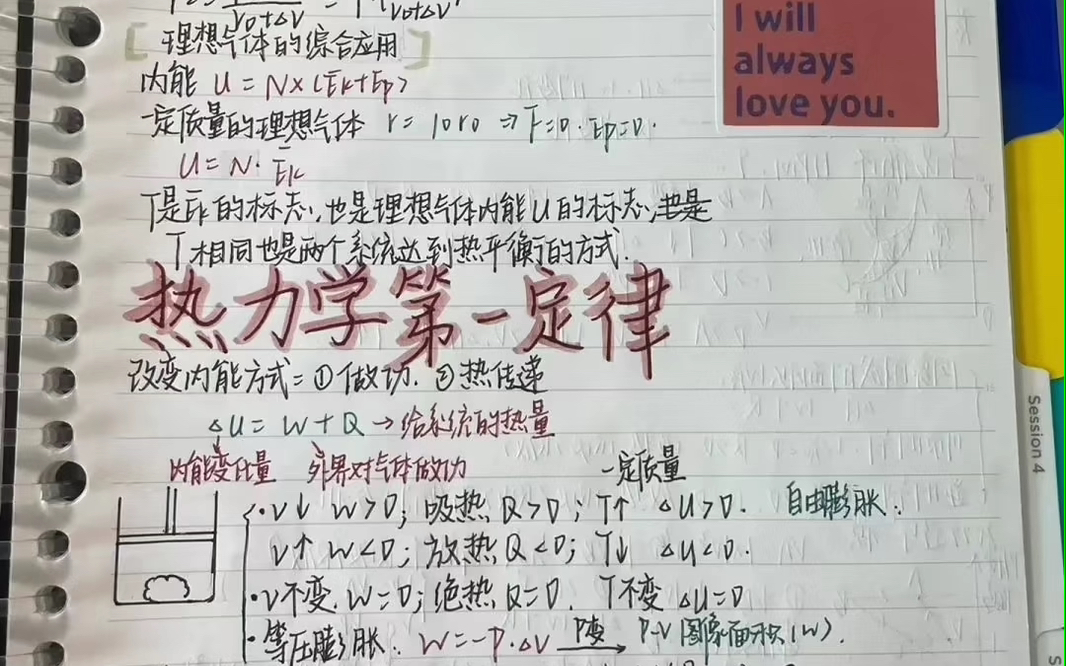 V0+ΔV V0+ΔV
[理想气体的综合应用]
内能 U = N×(Ek+Ep)
一定质量的理想气体 r = 10r0 ⇒ F=0. Ep=0.
U = N·Ēk
T是Ēk的标志,也是理想气体内能U的标志,也是
T相同也是两个系统达到热平衡的方式.
热力学第一定律
改变内能方式=①做功. ②热传递
ΔU = W + Q → 给系统的热量
内能变化量 外界对气体做功 一定质量
·V↓ W>0; 吸热 Q>0; T↑ ΔU>0. 自由膨胀.
V↑ W<0; 放热 Q<0; T↓ ΔU<0.
·V不变. W=0; 绝热 Q=0. T不变 ΔU=0
·等压膨胀. W=-P·ΔV P变→ P-V图像面积(W).
I will
always
love you.
Session 4